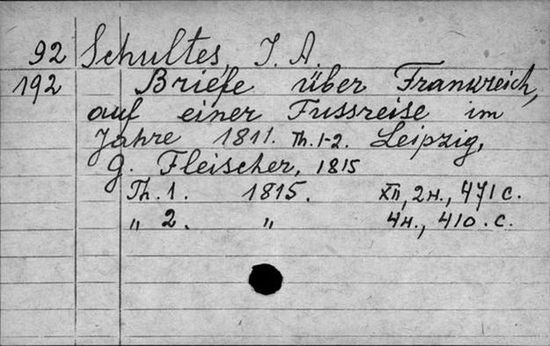 92 Schultes, J. A.
192 Briefe über Frankreich,
auf einer Fussreise im
Jahre 1811. Th. 1-2. Leipzig,
G. Fleischer, 1815
Th. 1. 1815. XII, 2 н., 471 с.
" 2. " 4 н., 410. с.